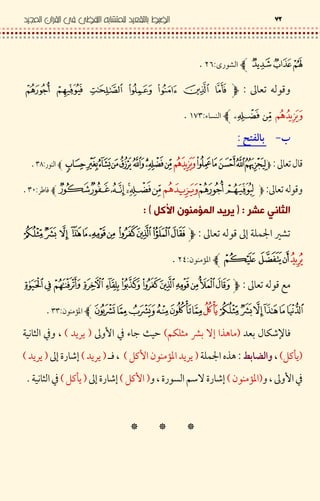 ٧٢ الضبط بالتقعيد للمتشابه اللفظي في القرآن المجيد
لَهُمْ عَذَابٌ شَدِيدٌ ﴾ الشورى:٢٦ .
وقوله تعالى : ﴿ فَأَمَّا الَّذِينَ ءَامَنُوا وَعَمِلُوا الصَّالِحَاتِ فَيُوَفِّيهِمْ أُجُورَهُمْ
وَيَزِيدُهُم مِّن فَضْلِهِ ﴾ النساء:١٧٣ .
ب- بالفتح :
قال تعالى : ﴿ لِيَجْزِيَهُمُ اللَّهُ أَحْسَنَ مَا عَمِلُوا وَيَزِيدَهُم مِّن فَضْلِهِ وَاللَّهُ يَرْزُقُ مَن يَشَاءُ بِغَيْرِ حِسَابٍ ﴾ النور:٣٨ .
وقوله تعالى: ﴿ لِيُوَفِّيَهُمْ أُجُورَهُمْ وَيَزِيدَهُم مِّن فَضْلِهِ إِنَّهُ غَفُورٌ شَكُورٌ ﴾ فاطر:٣٠ .
الثاني عشر : ( يريد المؤمنون الأكل ) :
تشير الجملة إلى قوله تعالى : ﴿ فَقَالَ الْمَلَؤُا الَّذِينَ كَفَرُوا مِن قَوْمِهِ مَا هَذَا إِلَّا بَشَرٌ مِّثْلُكُمْ
يُرِيدُ أَن يَتَفَضَّلَ عَلَيْكُمْ ﴾ المؤمنون:٢٤ .
مع قوله تعالى : ﴿ وَقَالَ الْمَلَأُ مِن قَوْمِهِ الَّذِينَ كَفَرُوا وَكَذَّبُوا بِلِقَاءِ الْآخِرَةِ وَأَتْرَفْنَاهُمْ فِي الْحَيَوةِ
الدُّنْيَا مَا هَذَا إِلَّا بَشَرٌ مِّثْلُكُمْ يَأْكُلُ مِمَّا تَأْكُلُونَ مِنْهُ وَيَشْرَبُ مِمَّا تَشْرَبُونَ ﴾ المؤمنون:٣٣ .
فالإشكال بعد (ماهذا إلا بشر مثلكم) حيث جاء في الأولى ( يريد ) ، وفي الثانية
(يأكل) ، والضابط : هذه الجملة ( يريد المؤمنون الأكل ) ، فـ ( يريد ) إشارة إلى ( يريد )
في الأولى ، و(المؤمنون ) إشارة لاسم السورة ، و( الأكل ) إشارة إلى ( يأكل ) في الثانية .
* * *